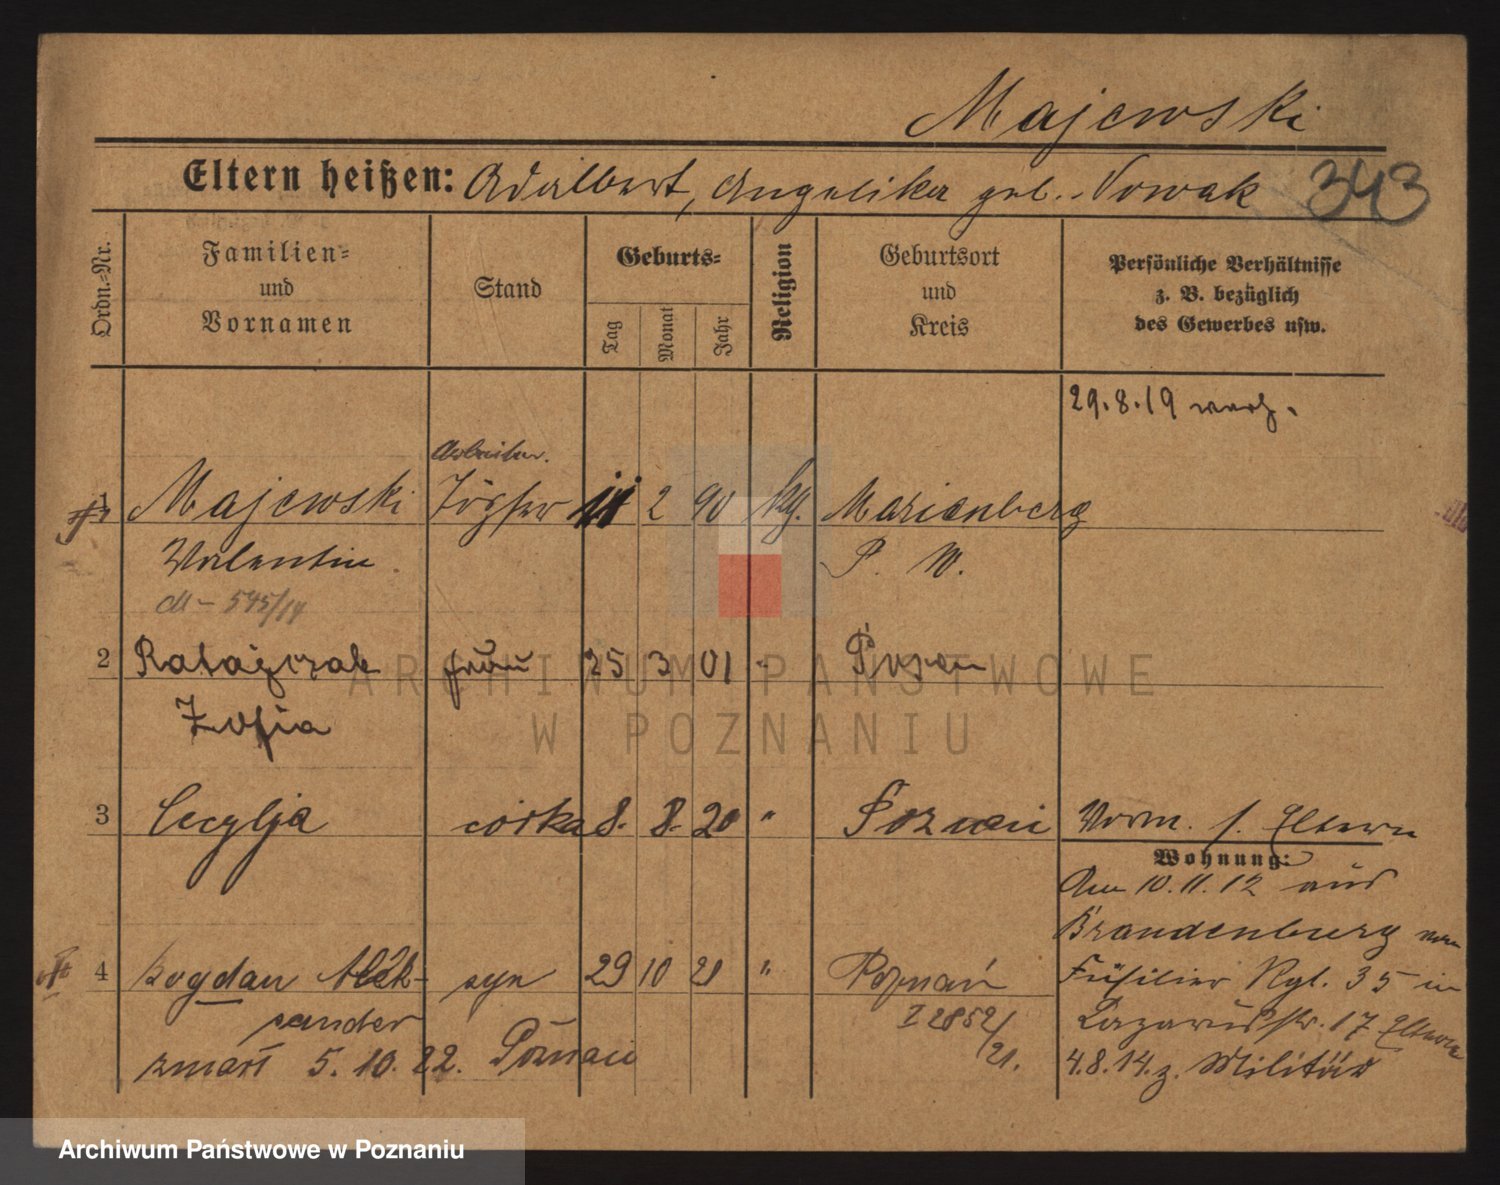 Majewski
Eltern heißen: Adalbert, Angelika geb. Nowak 343
Ordn.-Nr.
Familien-
und
Vornamen
Stand
Geburts-
Tag
Monat
Jahr
Religion
Geburtsort
und
Kreis
Persönliche Verhältnisse
z. B. bezüglich
des Gewerbes usw.
29.8.19
Arbeiter.
1 Majewski 11 2 90 kg. Marienberg
Valentin P. W.
M - 545/14
2 Ratajczak frau 25 3 01 " Posen
Zofia
3 Cecylja córka 8. 8. 20 " Poznań Vorm. s. Eltern
Wohnung:
Am 10.11.12 aus
Brandenburg
4 Bogdan Alek- syn 29 10 21 " Poznań Füsilier Rgt. 35 in
sander I 2852/21. Lazarusstr. 17 Eltern
zmarł 5.10.22. Poznań 4.8.14. z. Militär
ARCHIWUM PAŃSTWOWE
W POZNANIU
Archiwum Państwowe w Poznaniu